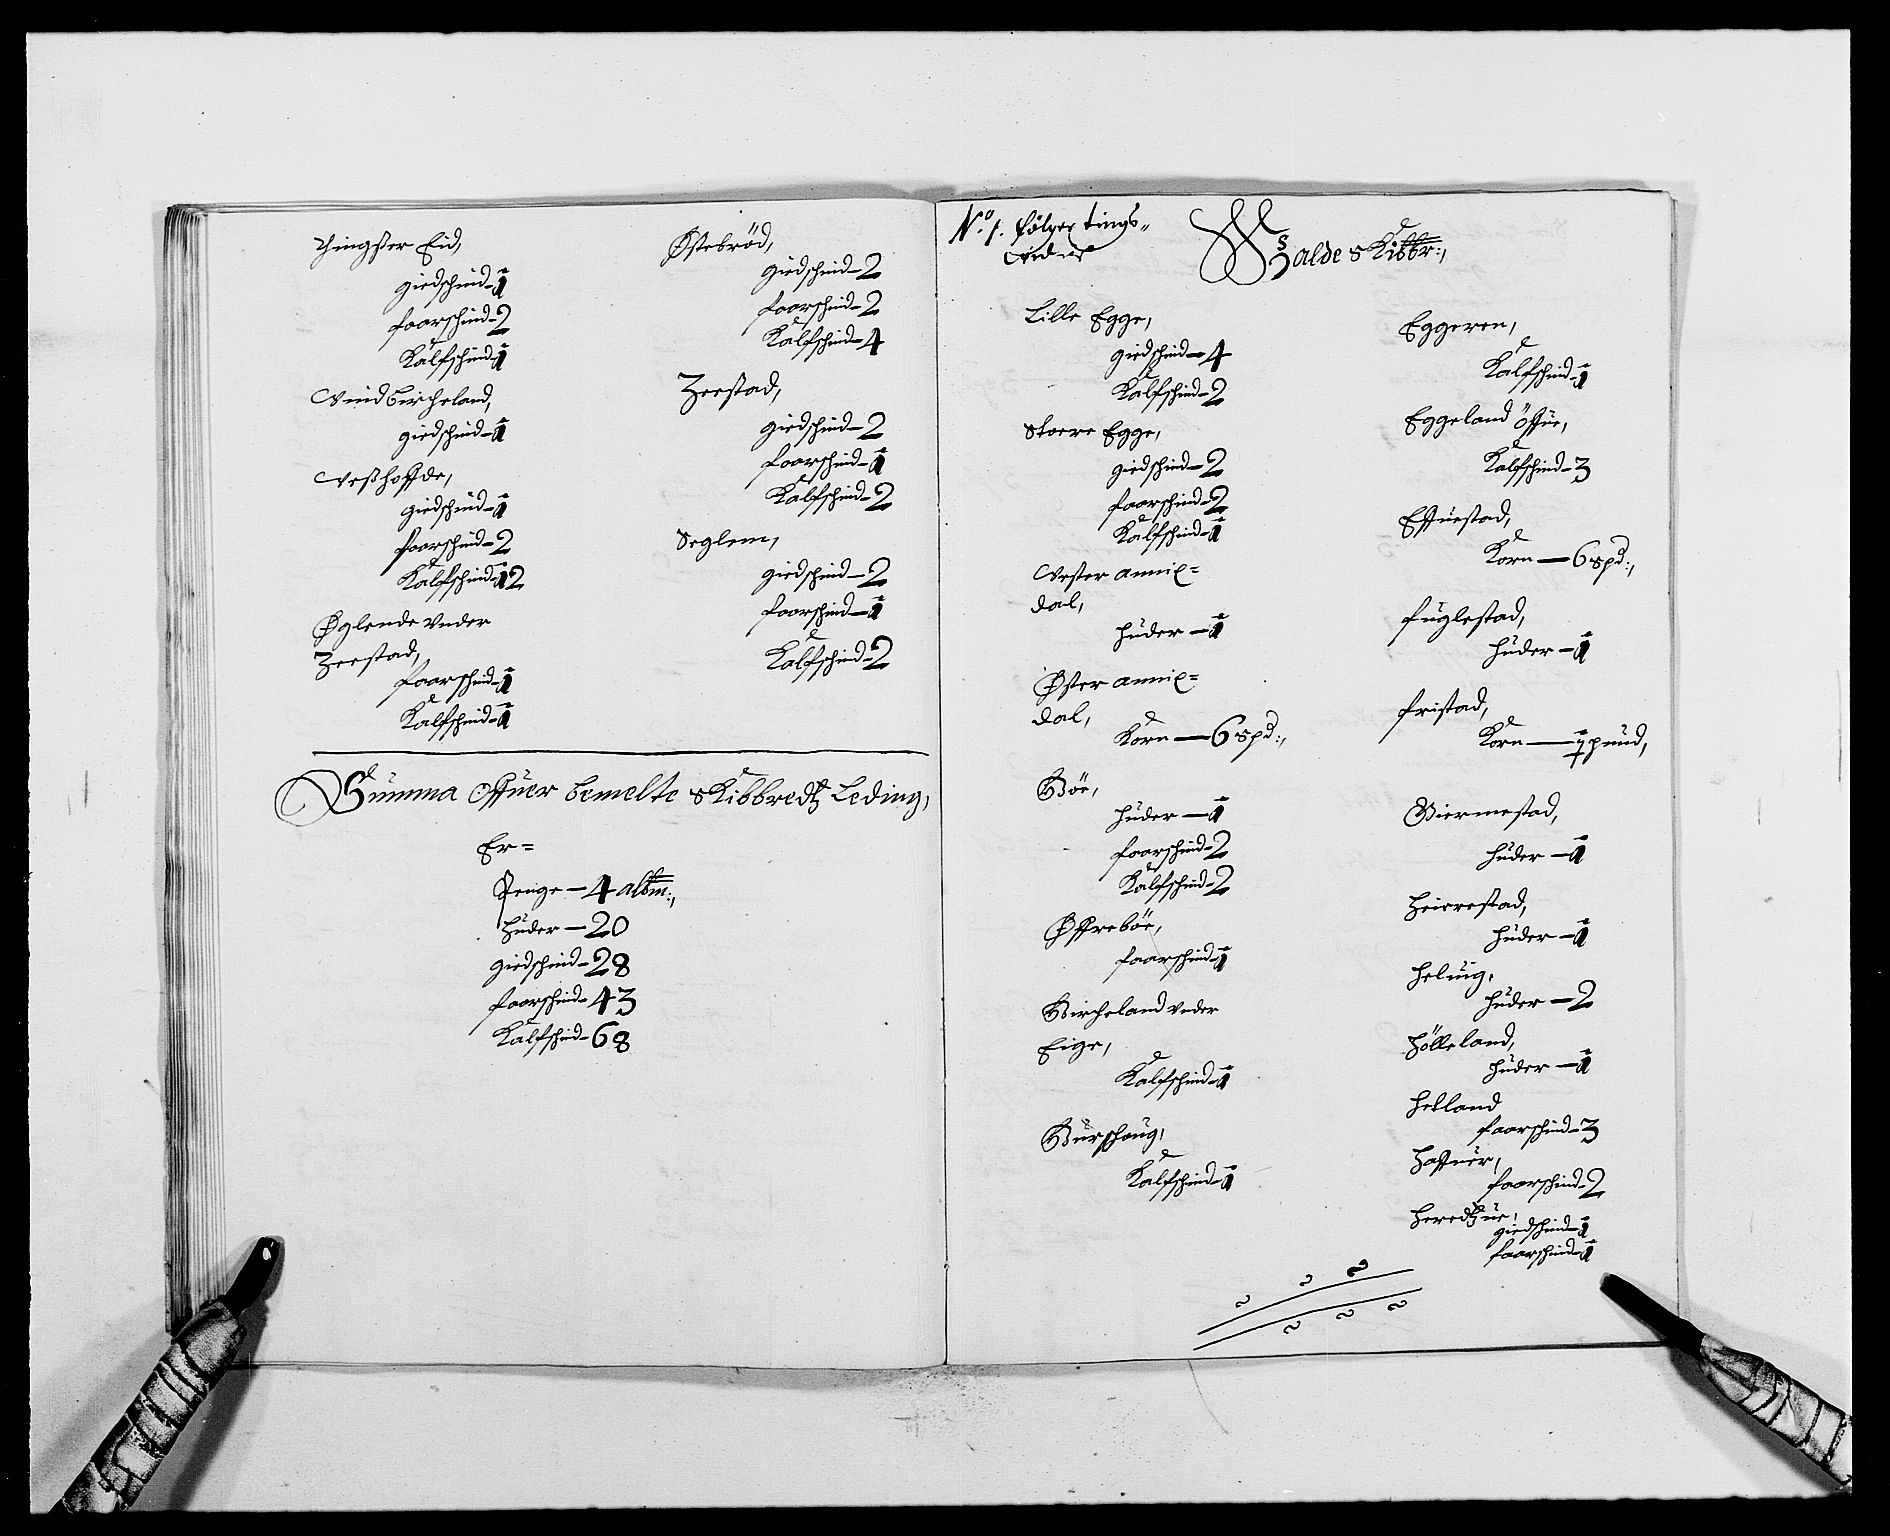 Thingster Eid,
giedschind - 1
faarschind - 2
Kalfschind - 1
Vind Bircheland,
giedschind - 1
Vesthoffde,
giedschind - 1
faarschind - 2
Kalfschind - 12
Øglende vnder
Zeestad,
faarschind - 1
Kalfschind - 1
Østebröd,
giedschind - 2
faarschind - 2
Kalfschind - 4
Zeestad,
giedschind - 2
faarschind - 1
Kalfschind - 2
Seglem,
giedschind - 2
faarschind - 1
Kalfschind - 2
Summa Offuer bemelte Skibbredtz Leding,
Er =
Penge - 4 albm:,
Huder - 20
giedschind - 28
faarschind - 43
Kalfschind - 68
No. 1. følger tings-
vidne
Skibbr:,
Lille Egge,
giedschind - 4
Kalfschind - 2
Stoere Egge,
giedschind - 2
faarschind - 2
Kalfschind - 1
Vester annix=
dal,
huder - 1
Øster annix=
dal,
Korn - 6 spd:,
Böe,
huder - 1
faarschind - 2
Kalfschind - 2
Øffreböe,
faarschind - 1
Bircheland vnder
Eige,
Kalfschind - 1
Burschoug,
Kalfschind - 1
Eggeren,
Kalfschind - 1
Eggeland öffue,
Kalfschind - 3
Effuestad,
Korn - 6 spd:,
fuglestad,
huder - 1
fristad,
Korn - 1 pund,
Giermestad,
huder - 1
Heirestad,
huder - 1
heluig,
huder - 2
Hölleland,
huder - 1
hetland
faarschind - 3
Haffuer,
faarschind - 2
giedschind - 1
faarschind - 1